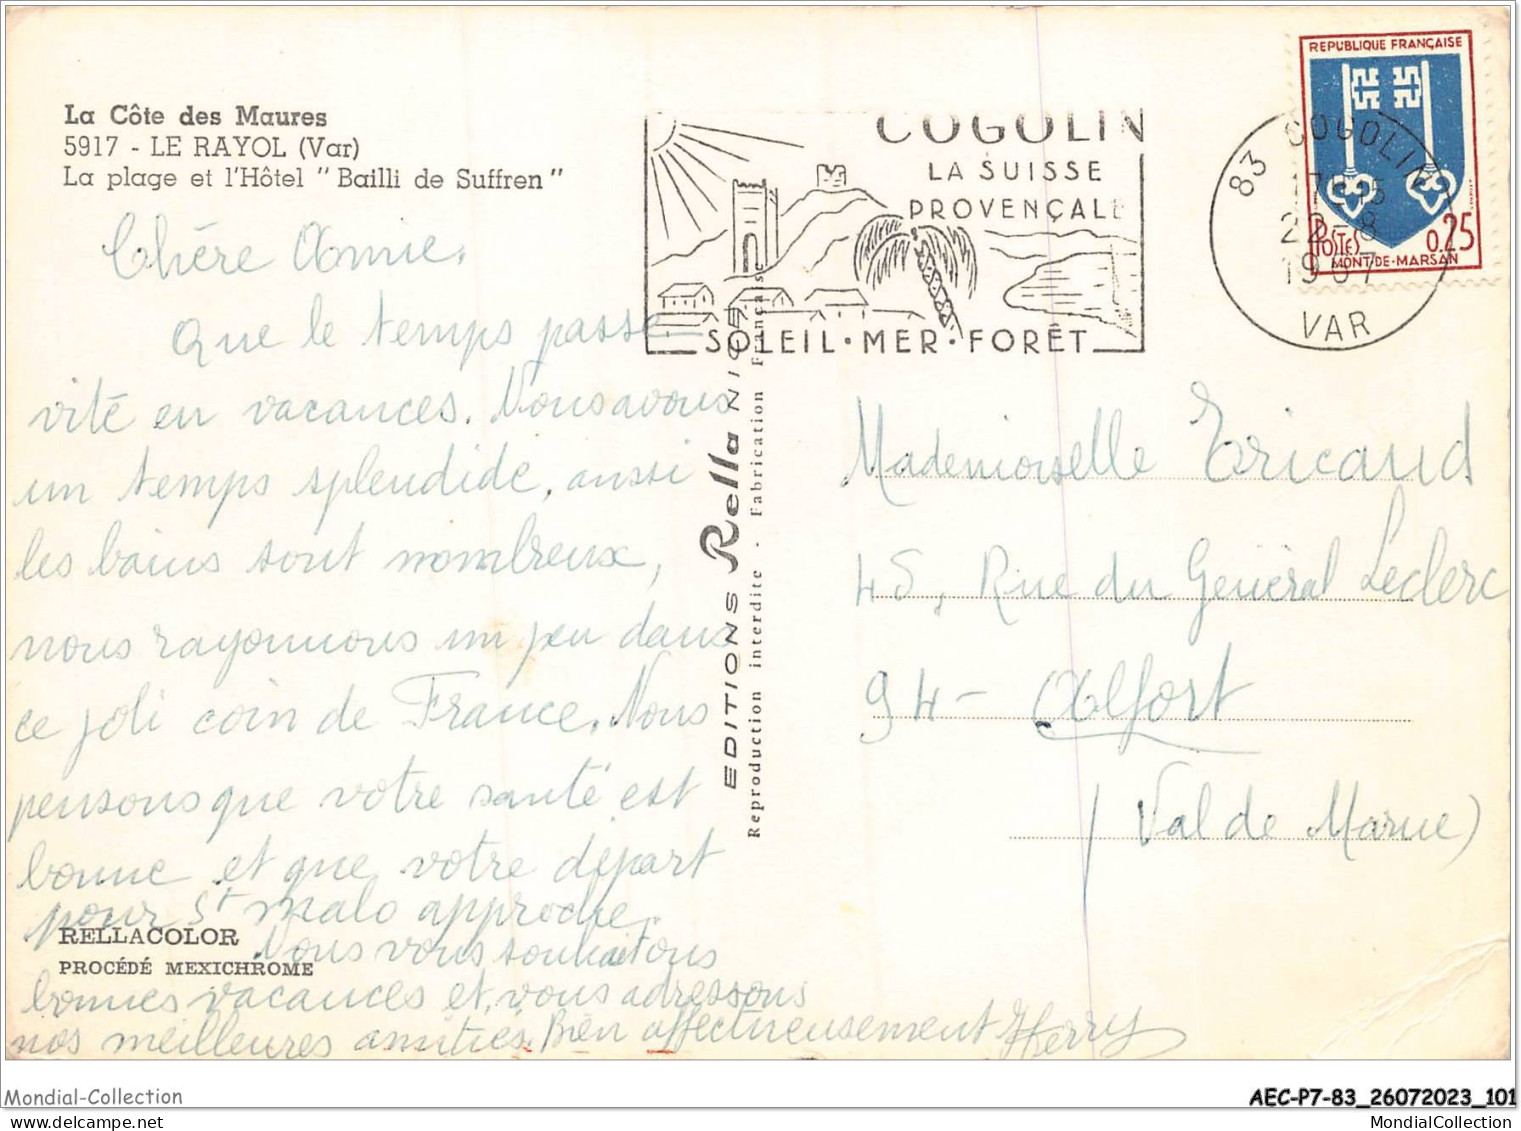 La Côte des Maures
5917 - LE RAYOL (Var)
La plage et l'Hôtel "Bailli de Suffren"
Chère Amie.
Que le temps passe
vite en vacances. Nous avons
un temps splendide, aussi
les bains sont nombreux,
nous rayonnons un peu dans
ce joli coin de France. Nous
pensons que votre santé est
bonne et que votre départ
pour St malo approche.
Nous vous souhaitons
bonnes vacances et vous adressons
nos meilleures amitiés. Bien affectueusement
RELLACOLOR
PROCÉDÉ MEXICHROME
EDITIONS Rella NICE
Reproduction interdite - Fabrication Française
COGOLIN
LA SUISSE
PROVENÇALE
SOLEIL·MER·FORÊT
83 COGOLIN
17H15
22-8
1967
VAR
REPUBLIQUE FRANÇAISE
POSTES
0.25
MONT-DE-MARSAN
Mademoiselle Ericaud
45, Rue du Général Leclerc
94- Alfort
(Val de Marne)
Mondial-Collection
AEC-P7-83_26072023_101
MondialCollection